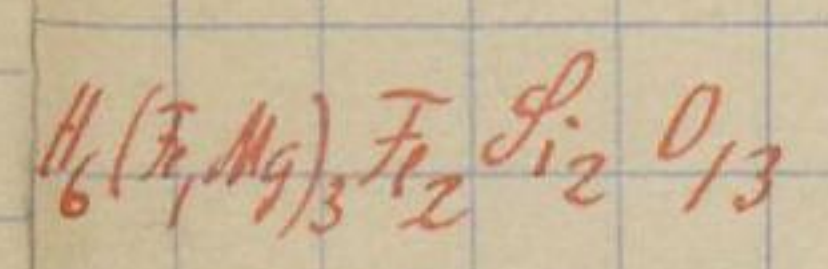 H₆(Fe,Mg)₃Fe₂ Si₂ O₁₃